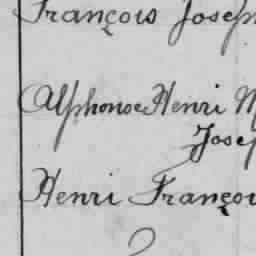 François Joseph
Alphonse Henri M
Josep
Henri Françoi